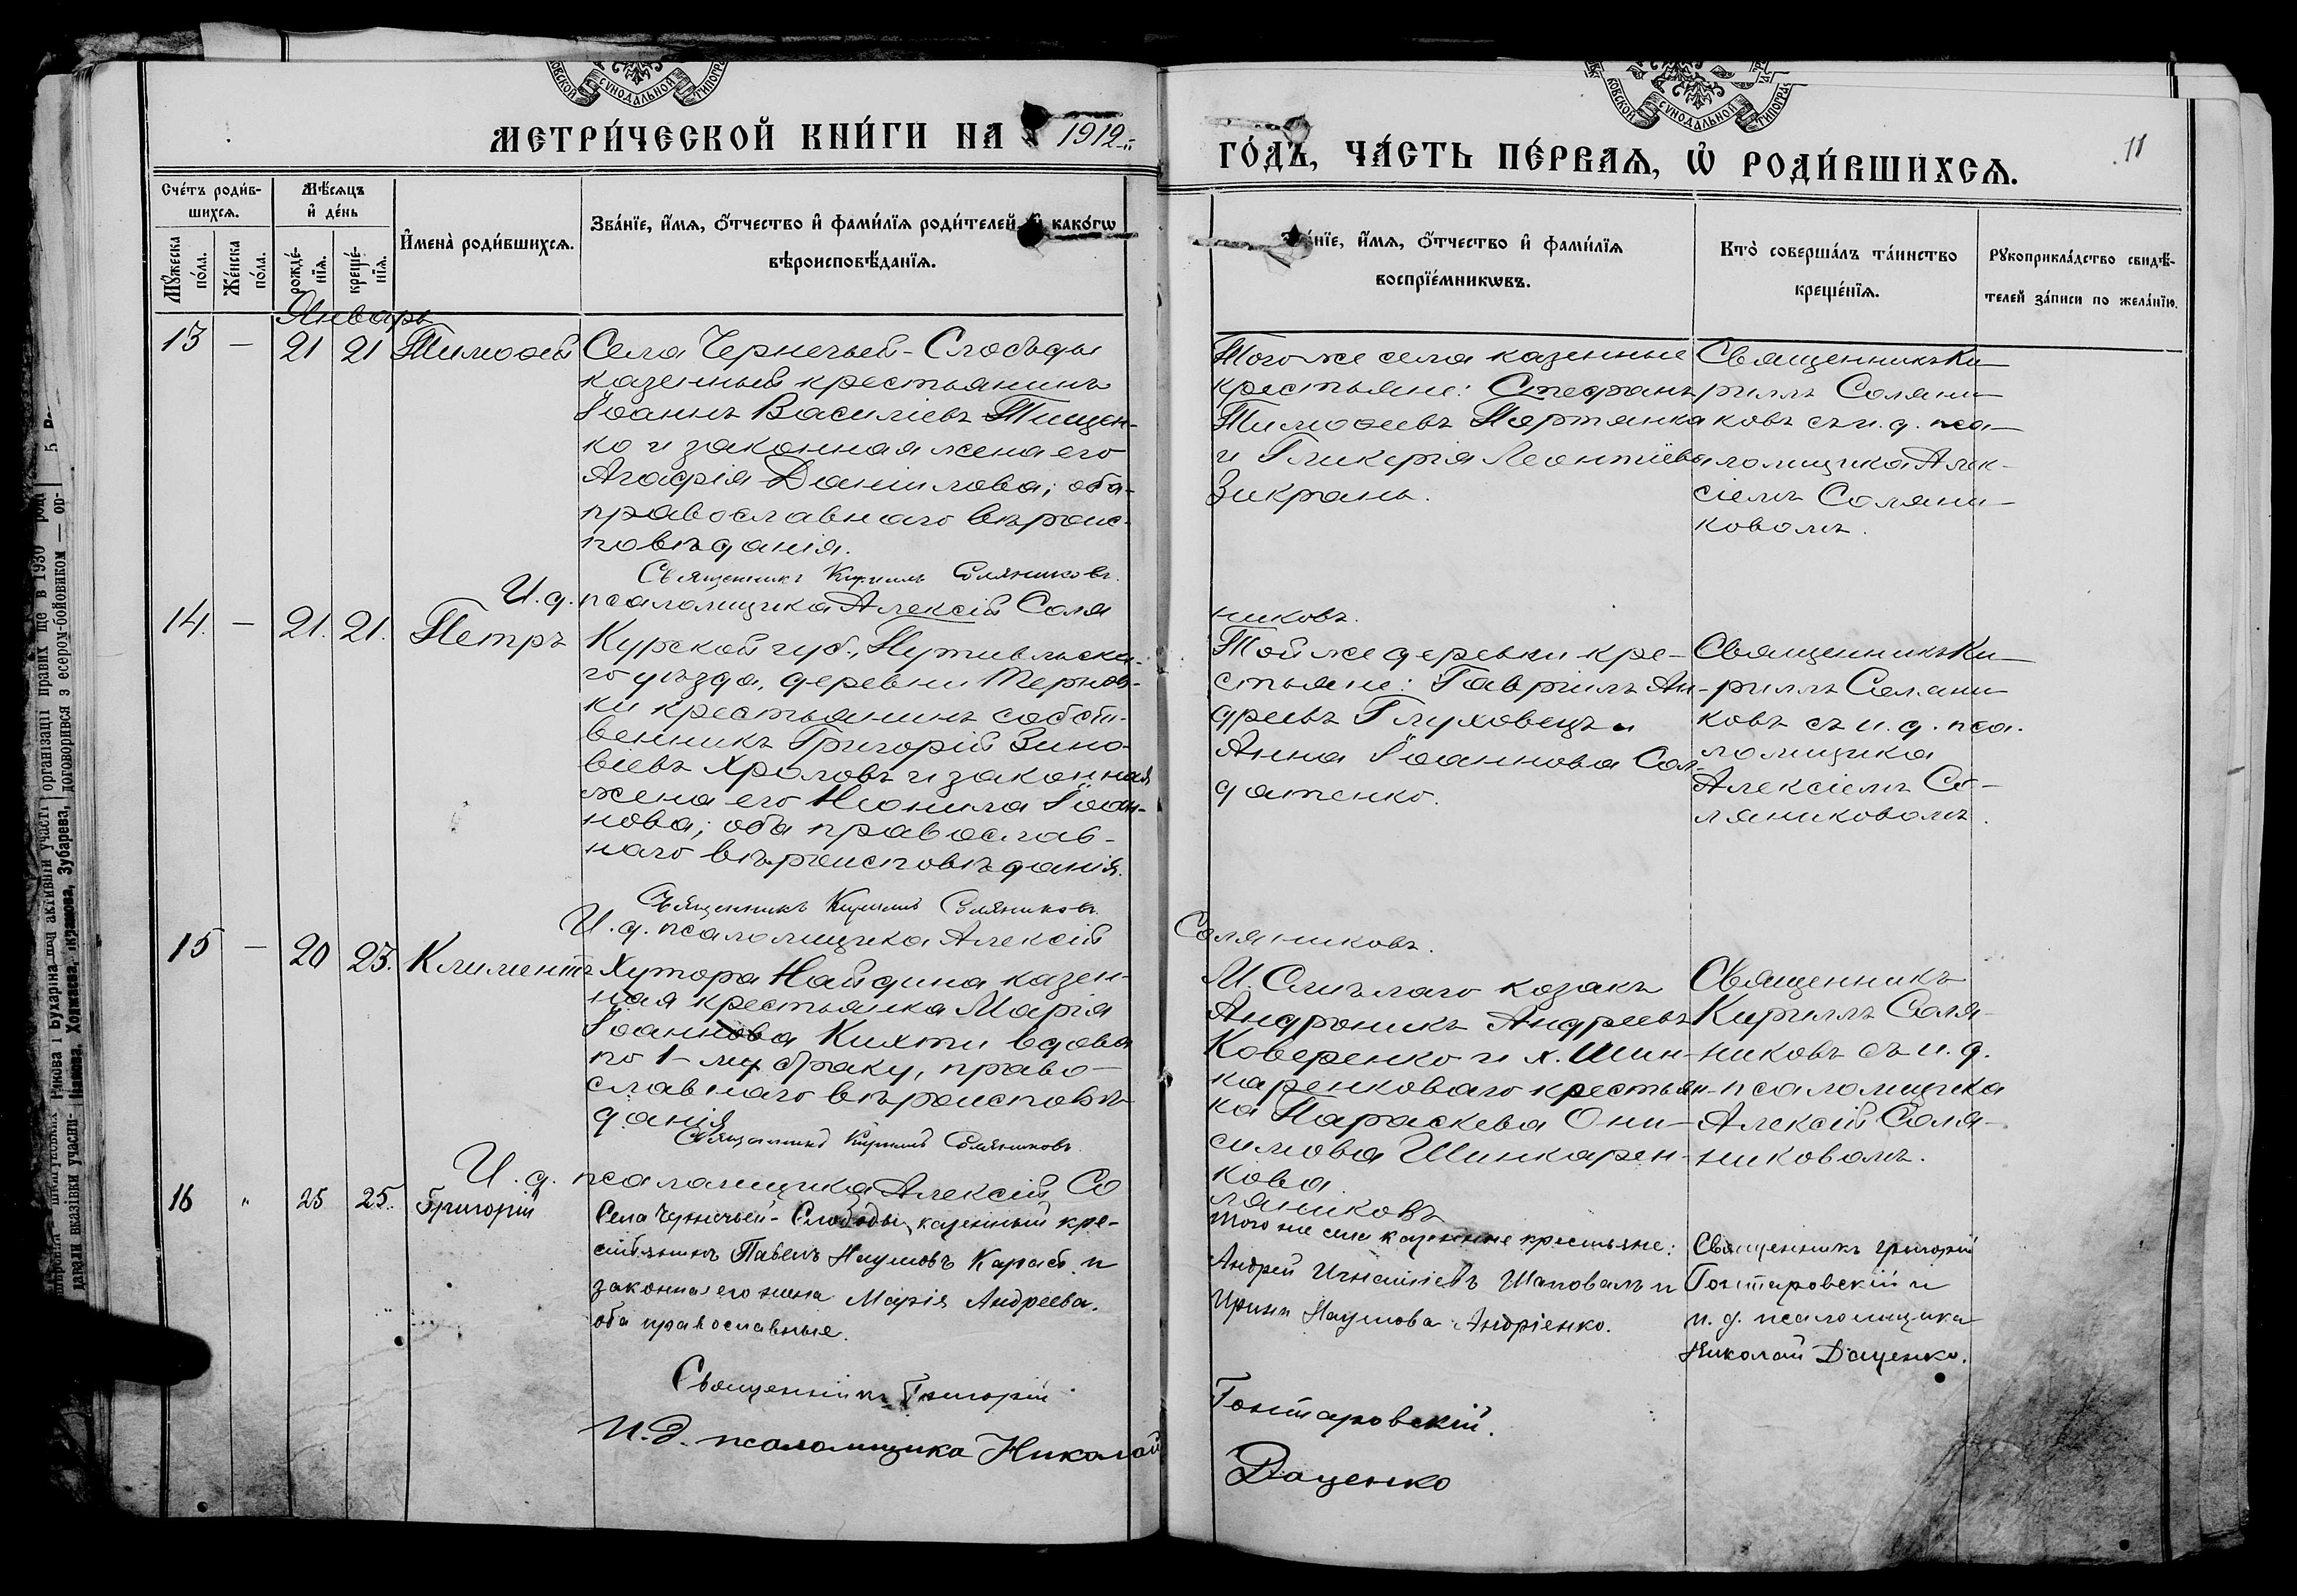 МЕТРИ́ЧЕСКОЙ КНИ́ГИ НА 1912
ГО́ДЪ, ЧА́СТЬ ПЕ́РВАѦ, Ѡ҆ РОДИ́ВШИХСѦ.
11
Сче́тъ роди́в-
шихсѧ.
Мѣ́сѧцъ
и҆ де́нь
Мꙋ́жеска
по́ла.
Же́нска
по́ла.
рожде́-
нїѧ.
креще́-
нїѧ.
И҆мена̀ роди́вшихсѧ.
Зва́нїе, и҆́мѧ, ѻ҆́тчество и҆ фами́лїѧ роди́телей, и҆ како́гѡ
вѣроисповѣ́данїѧ.
нїе, и҆́мѧ, ѻ҆́тчество и҆ фами́лїѧ
воспрїе́мникѡвъ.
Кто̀ соверша́лъ та́инство
креще́нїѧ.
Рꙋкоприкла́дство свидѣ́-
телей за́писи по жела́нїю.
Январь
13 — 21 21 Тимоѳей
Села Чернечьей-Слободы
казенный крестьянинъ
Іоаннъ Василіевъ Тищен-
ко и законная жена его
Агафія Даніилова; оба
православнаго вѣроис-
повѣданія.
Священникъ Кириллъ Соляниковъ.
И. д. псаломщика Алексій Соля
Того же села казенные
крестьяне: Стефанъ
Тимоѳеевъ Портянка
и Гликерія Леонтіева
Зикрань.
никовъ.
Священникъ Ки-
риллъ Соляни-
ковъ съ и. д. пса-
ломщика Алек-
сіемъ Соляни-
ковомъ.
14. — 21. 21. Петръ
Курской губ., Путивльска-
го уѣзда, деревни Тернов-
ки крестьянинъ собст-
венникъ Григорій Зино-
віевъ Хроловъ и законная
жена его Неонила Іоан-
нова; оба православ-
наго вѣроисповѣданія.
Священникъ Кириллъ Соляниковъ.
И. д. псаломщика Алексій
Той же деревни кре-
стьяне: Гавріилъ Ан-
дреевъ Глуховецъ и
Анна Іоаннова Сол-
датенко.
Соляниковъ.
Священникъ Ки-
риллъ Соляни-
ковъ съ и. д. пса-
ломщика
Алексіемъ Со-
ляниковомъ.
15 — 20 23. Климентъ
Хутора Найдина казен-
ная крестьянка Марія
Іоаннова Кихти вдова
по 1-му браку, право-
славнаго вѣроисповѣ-
данія
Священникъ Кириллъ Соляниковъ.
И. д. псаломщика Алексій Со
М. Смѣлаго козакъ
Андроникъ Андреевъ
Коверенко и х. Шин-
каренковаго крестьян-
ка Параскева Они-
симова Шинкарен-
кова.
ляниковъ
Священникъ
Кириллъ Соля-
никовъ съ и. д.
псаломщика
Алексій Соля-
никовомъ.
16 " 25 25. Григорій
Села Чернечьей-Слободы казенный кре-
стьянинъ Павелъ Наумовъ Карась и
законная его жена Марія Андреева.
оба православные.
Священникъ Григорій
И. д. псаломщика Николай
Того же села казенные крестьяне:
Андрей Игнатіевъ Шаповалъ и
Ирина Наумова Андріенко.
Гонтаровскій.
Даценко
Священникъ Григорій
Гонтаровскій и
и. д. псаломщика
Николай Даценко.